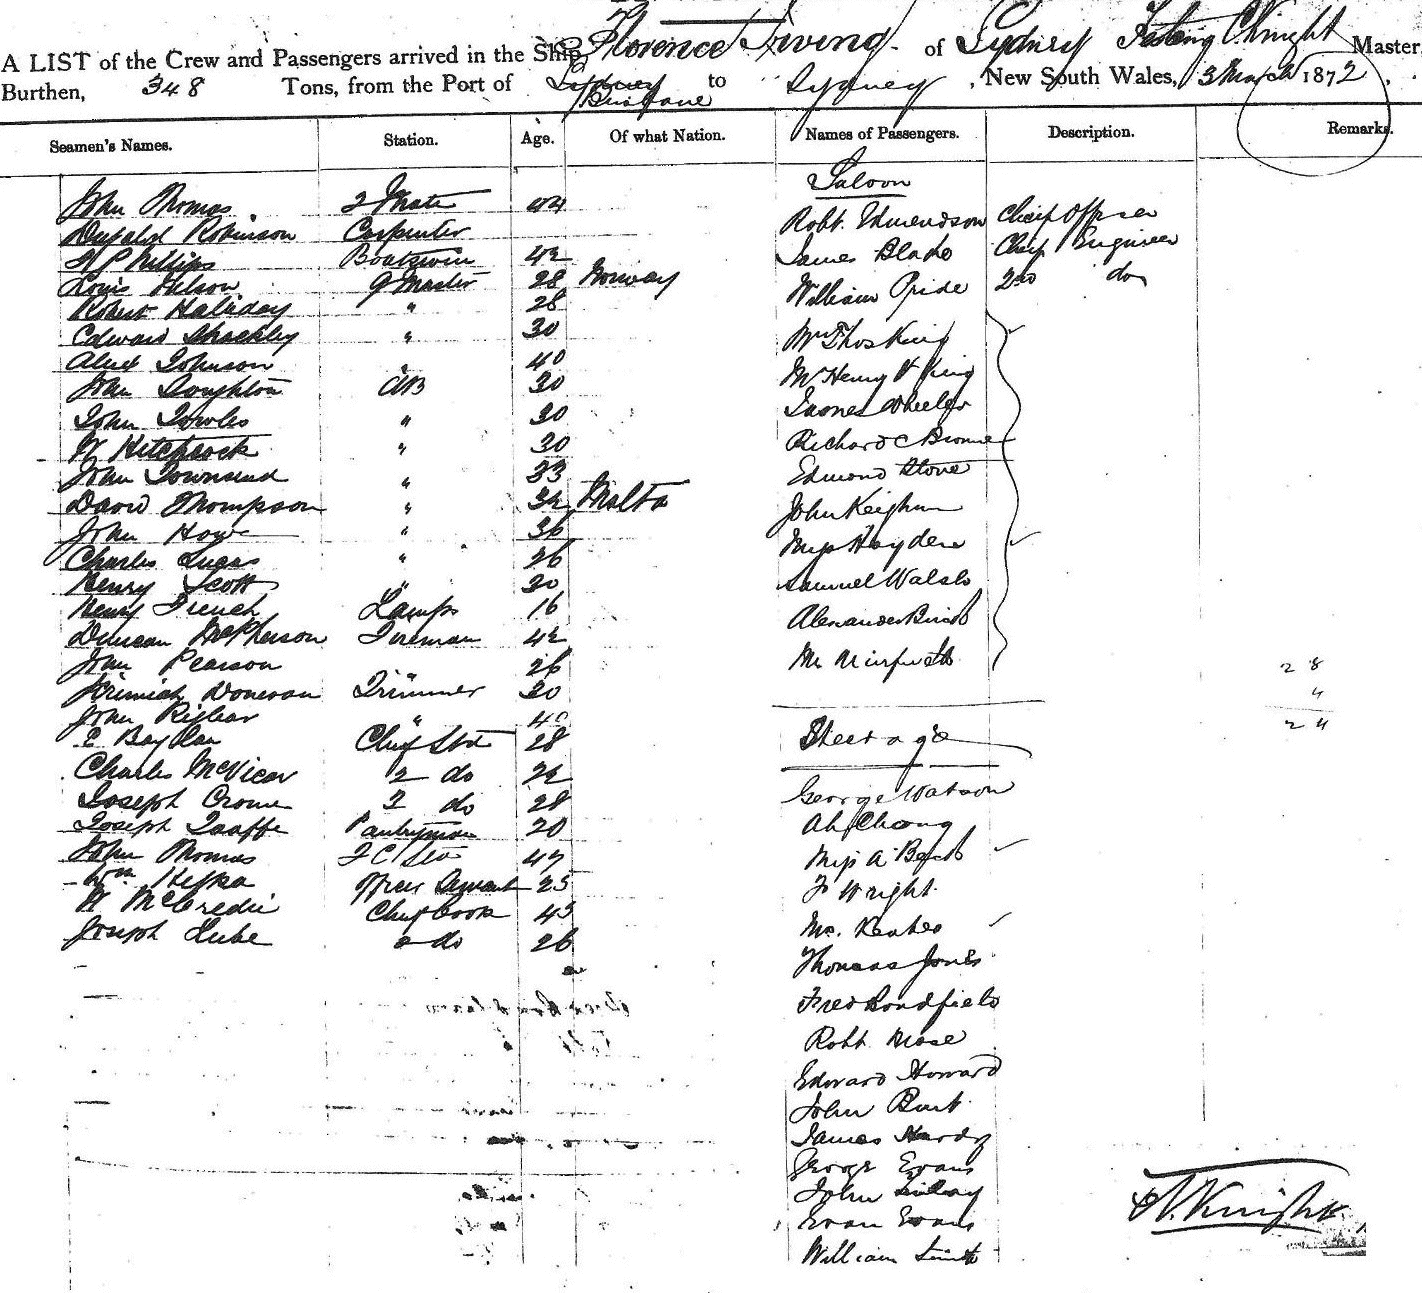 A LIST of the Crew and Passengers arrived in the Ship Florence Irving of Sydney Knight Master,
Burthen, 348 Tons, from the Port of Sydney Brisbane to Sydney, New South Wales, 3 March 1872.
Seamen's Names. Station. Age. Of what Nation. Names of Passengers. Description. Remarks.
Saloon
John Thomas 2 Mate 44 Robt. Edmendson Chief Officer
Dugald Robinson Carpenter James Blake Chief Engineer
Phillips Boatswin 42
Louis Nelson Q Master 28 Norway William Pride 2nd do
Robert Haliday " 28
Edward Shackley " 30 Mr Thos King
Alex Johnson " 40
John Doughton AB 30 Mr Henry King
John Towles " 30 James Wheeler
W Hitchcock " 30 Richard C Browne
John Townsend " 33 Edmond Stone
David Thompson " 32 Malta John Keighran
John Howe " 36
Charles Lucas " 26 Miss Hayden
Henry Scott " 30 Samuel Walsh
Henry French Lamps 16
Duncan McPherson Fireman 42 Alexander
John Pearson " 26 Mr 28
Jerimiah Donovan Trimmer 30 4
John " 40 24
E Chief Std 28 Steerage
Charles McVicar 2 do 22 George Watson
Joseph Crome 3 do 28
Joseph Taaffe Pantryman 20 Ah Cheong
John Thomas F C Std 47 Miss A
Wm Officers Servant 25 F Wright
McCredie Chief Cook 43 Mc. Keahes
Joseph Lube 2 do 26
Thomas Jones
Fred Bondfield
Robt. Mose
Edward Howard
John Burt
James Hardy
George Evans
John Lindsay
Evan Evans
William Smith
Knight